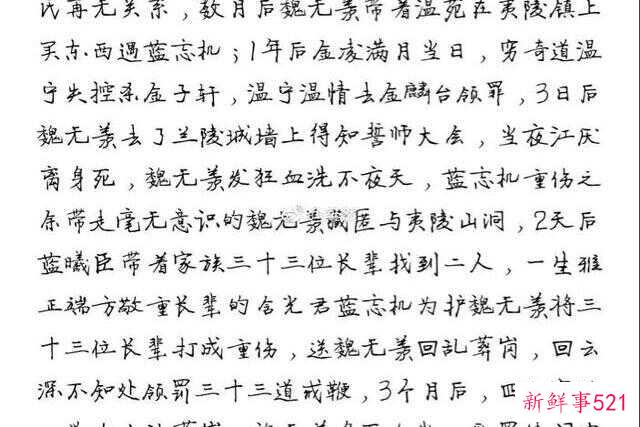 氏再无关系，数月后魏无羡带着温苑在夷陵镇上
买东西遇蓝忘机；1年后金凌满月当日，穷奇道温
宁失控杀金子轩，温宁温情去金麟台领罪，3日后
魏无羡去了兰陵城墙上得知誓师大会，当夜江厌
离身死，魏无羡发狂血洗不夜天，蓝忘机重伤之
余带走毫无意识的魏无羡藏匿与夷陵山洞，2天后
蓝曦臣带着家族三十三位长辈找到二人，一生雅
正端方敬重长辈的含光君蓝忘机为护魏无羡将三
十三位长辈打成重伤，送魏无羡回乱葬岗，回云
深不知处领罚三十三道戒鞭，3个月后，四
新鲜事521